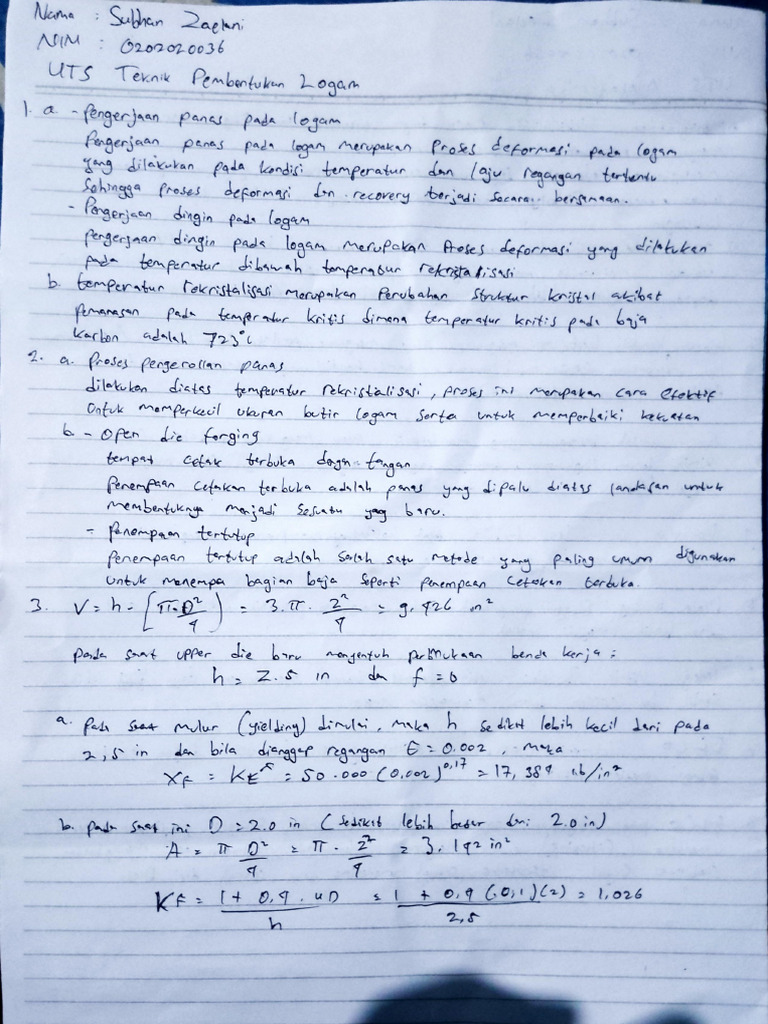 Nama : Subhan Zaelani
NIM : 0202020036
UTS Teknik Pembentukan Logam
1. a. - Pengerjaan panas pada logam
Pengerjaan panas pada logam merupakan Proses deformasi pada logam
yang dilakukan pada kondisi temperatur dan laju regangan tertentu
Sehingga proses deformasi dan recovery terjadi secara bersamaan.
- Pengerjaan dingin pada logam
pergerjaan dingin pada logam merupakan Proses deformasi yang dilakukan
pada temperatur dibawah temperatur rekristalisasi
b. temperatur rekristalisasi merupakan Perubahan struktur kristal akibat
Pemanasan pada temperatur kritis dimana temperatur kritis pada baja
karbon adalah 723°C
2. a. Proses pengerollan panas
dilakukan diatas temperatur rekristalisasi, proses ini merupakan cara efektif
Untuk memperkecil ukuran butir logam serta untuk memperbaiki kekuatan
b. - Open die forging
tempat cetak terbuka dengan tangan
Penempaan cetakan terbuka adalah panas yang dipalu diatas landasan untuk
membentuknya menjadi sesuatu yang baru.
- Penempaan tertutup
Penempaan tertutup adalah Salah satu metode yang paling umum digunakan
untuk menempa bagian baja seperti penempaan cetakan terbuka.
3. V = h - [π.D²/4] = 3.π. 2²/4 = 9.426 in²
pada saat upper die baru menyentuh permukaan benda kerja =
h = 2.5 in dan f = 0
a. pada saat mulur (yielding) dimulai, maka h sedikit lebih kecil dari pada
2,5 in dan bila dianggap regangan E = 0.002, maka
YF = KEⁿ = 50.000 (0,002)^0,17 = 17,384 lb/in²
b. pada saat ini D = 2.0 in (sedikit lebih besar dari 2.0 in)
A = π D²/4 = π. 2²/4 = 3.142 in²
KF = 1 + 0,4 . uD / h = 1 + 0,4 (0,1)(2) / 2,5 = 1,026